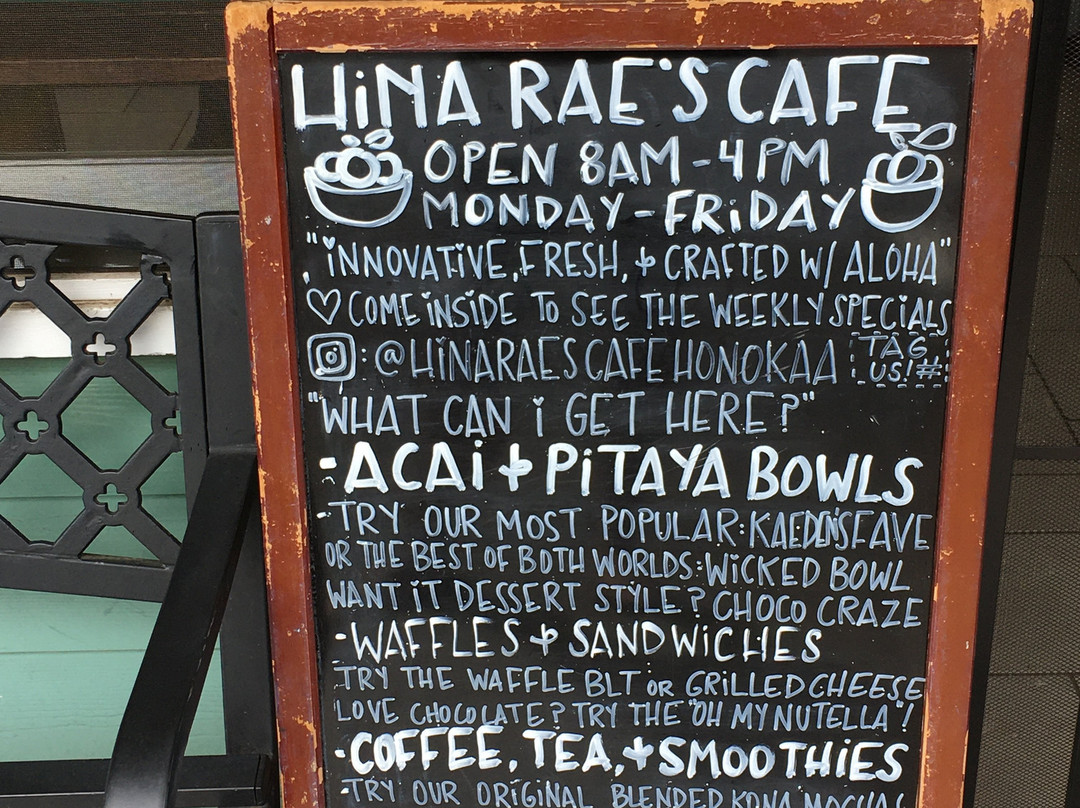 HiNA RAE'S CAFE
OPEN 8AM-4PM
MONDAY-FRiDAY
"iNNOVATiVE, FRESH, + CRAFTED W/ ALOHA"
♡ COME iNSiDE TO SEE THE WEEKLY SPECiALS
: @HiNARAESCAFEHONOKAA TAG US! #
"WHAT CAN i GET HERE?"
-ACAi + PiTAYA BOWLS
-TRY OUR MOST POPULAR: KAEDEN'S FAVE
OR THE BEST OF BOTH WORLDS: WiCKED BOWL
WANT iT DESSERT STYLE? CHOCO CRAZE
-WAFFLES + SANDWiCHES
TRY THE WAFFLE BLT OR GRiLLED CHEESE
LOVE CHOCOLATE? TRY THE "OH MY NUTELLA"!
-COFFEE, TEA, + SMOOTHiES
-TRY OUR ORiGiNAL BLENDED KONA MOCHA!